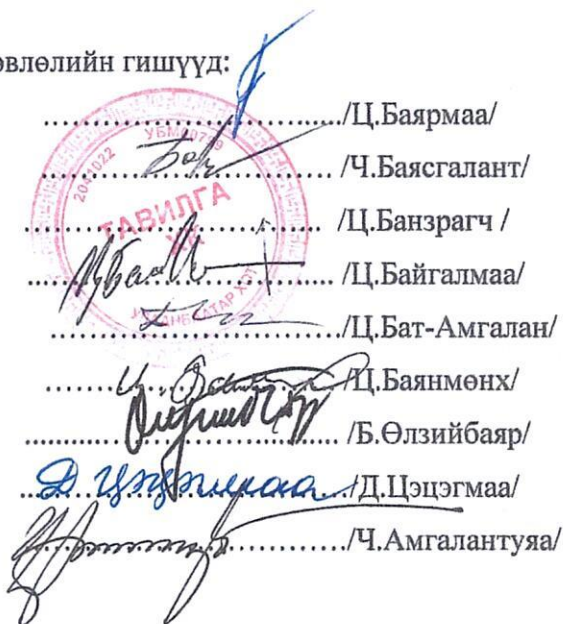 өвлөлийн гишүүд:
............................../Ц.Баярмаа/
............................../Ч.Баясгалант/
............................../Ц.Банзрагч /
............................../Ц.Байгалмаа/
............................../Ц.Бат-Амгалан/
............................../Ц.Баянмөнх/
............................../Б.Өлзийбаяр/
Д Цэцэгмаа............../Д.Цэцэгмаа/
............................../Ч.Амгалантуяа/
ТАВИЛГА
ХК